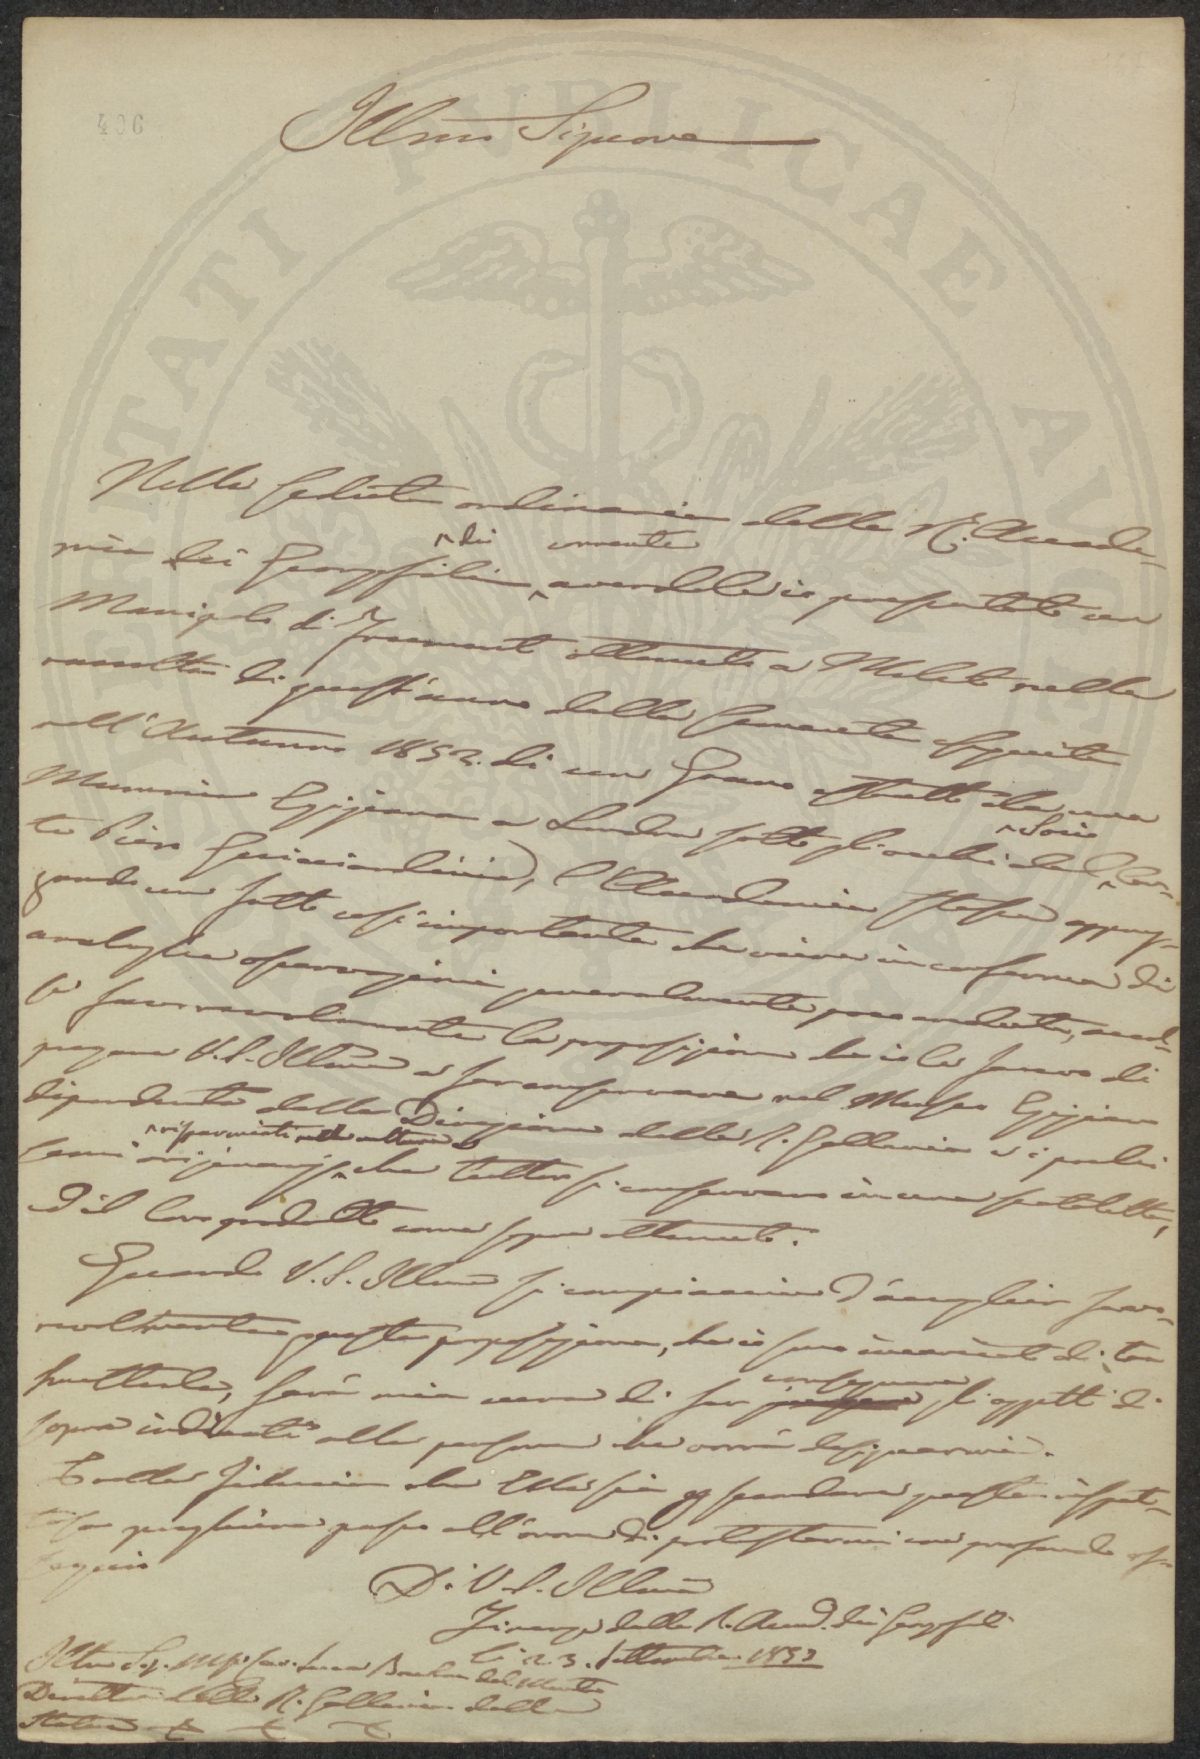 406
Illmo Signore
Nella seduta ordinaria della R. Accade-
mia dei Georgofili ^ di corrente avendole io presentato un
Manipolo di Frumento ottenuto a Meleto nella
raccolta di quest'anno dalla sementa seguita
nell'Autunno 1852. di un Grano estratto da una
Mummia Egiziana a Londra sotto gli occhi del ^ Socio Con-
te Piero Guicciardini, l'Accademia stessa apprez-
zando un fatto così importante che viene in conferma di
analoghe osservazioni generalmente poco credute, accol-
se favorevolmente la proposizione che io le faceva di
pregare V.S. Illma a far conservare nel Museo Egiziano
dipendente dalla Direzione della R. Galleria i pochi
semi ^ risparmiati nella cultura che tuttora si conservano in una scatoletta,
ed il loro prodotto come sopra ottenuto.
Quando V.S. Illma si compiaccia d'accoglier favo-
revolmente questa proposizione, che io sono incaricato di tra
smetterle, sarà mia cura di far consegnare gli oggetti di
sopra indicati alla persona che vorrà designarmi.
Colla fiducia che Ella sia per secondare questa rispet-
tosa preghiera passo all'onore di protestarmi con profondo os-
sequio
Di V.S. Illma
Firenze dalla R. Accad. dei Georgofili
li 23. Settembre 1853
Illmo Sig. March. Cav. Luca Bourbon del Monte
Direttore della R. Galleria delle
Statue
PUBLICAE